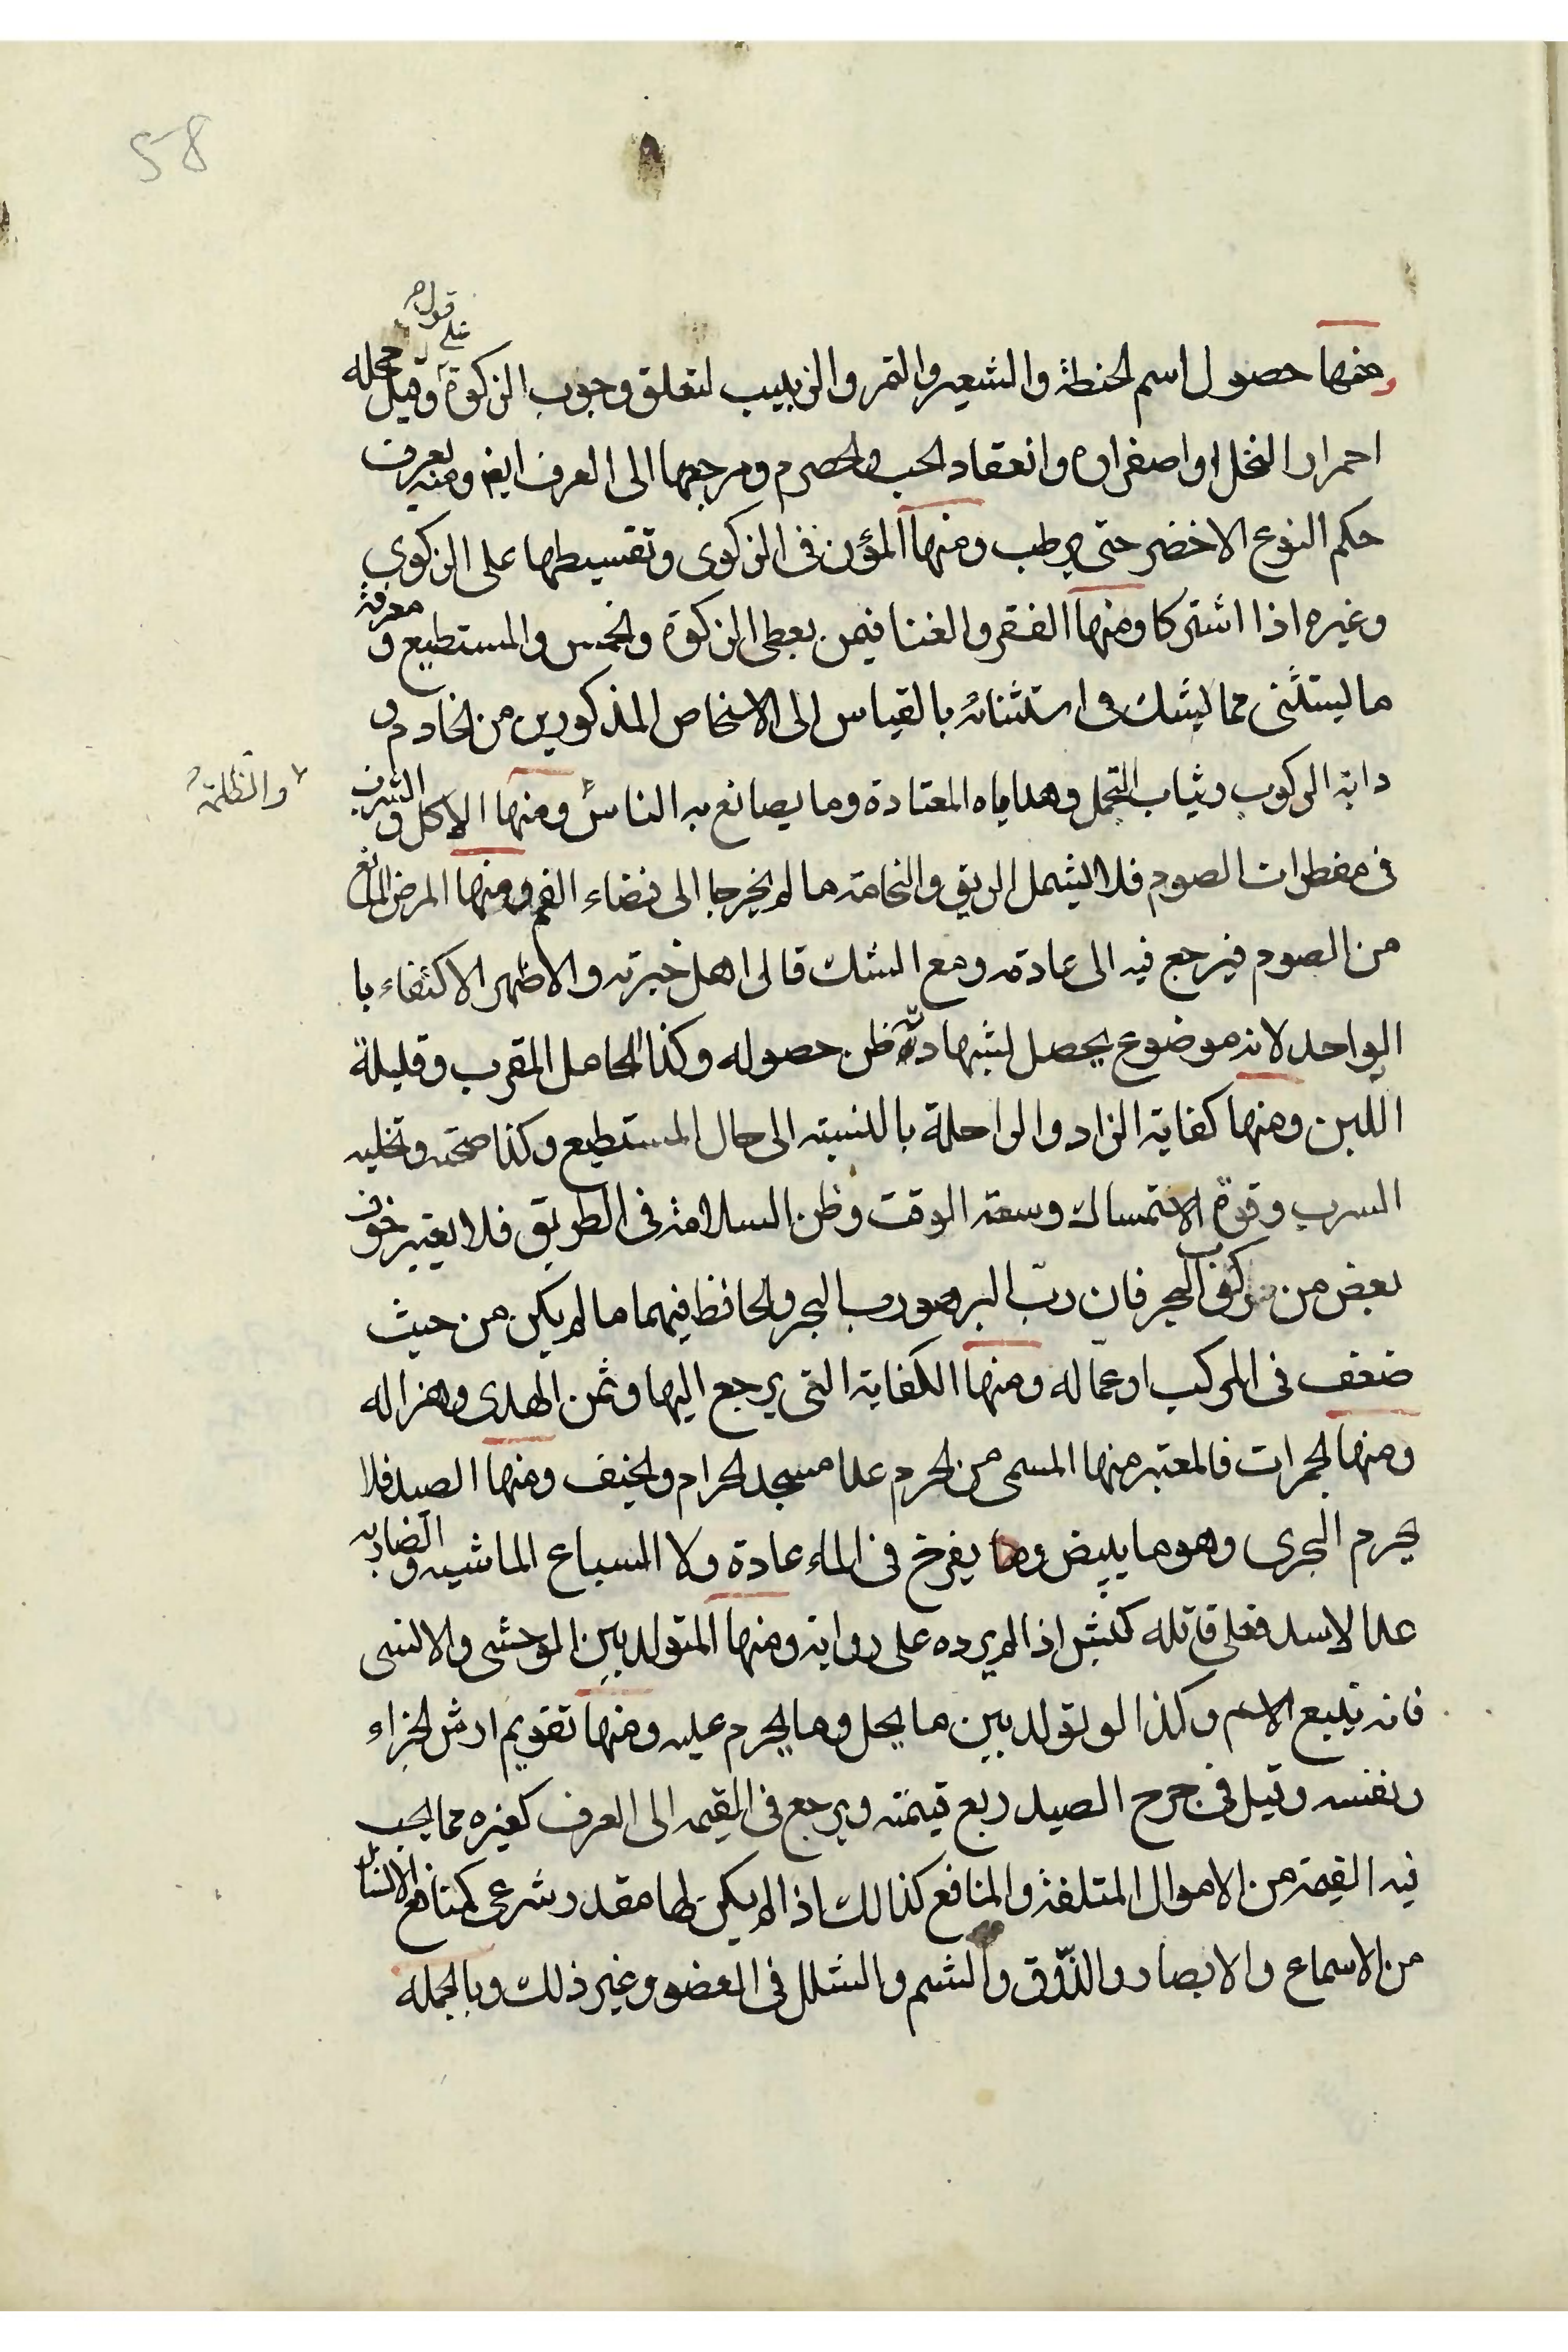 58
على قول
ومنها حصول اسم الحنطة والشعير والتمر والزبيب لتعلق وجوب الزكوة وقيل محله
احمرار النخل او اصفراره وانعقاد الحب والحصرم ومرجعها الى العرف ايض ومنه يعرف
حكم النوع الاخضر حتى يرطب ومنها المؤن في الزكوى وتقسيطها على الزكوى
وغيره اذا اشتركا ومنها الفقر والغنا فيمن يعطى الزكوة والخمس والمستطيع و معرفة
ما يستثنى مما يشك في استثنائه بالقياس الى الاشخاص المذكورين من الخادم و
دابة الركوب وثياب التجمل وهداياه المعتادة وما يصانع به الناس ومنها الاكل والشرب
والظلمة
في مفطرات الصوم فلا يشمل الريق والنخامة ما لم يخرجا الى فضاء الفم ومنها المرض المانع
من الصوم فيرجع فيه الى عادته ومع الشك فالى اهل خبرته والاظهر الاكتفاء با
الواحد لانه موضوع يحصل بشهادته ظن حصوله وكذا الحامل المقرب وقليلة
اللبن ومنها كفاية الزاد والراحلة بالنسبة الى حال المستطيع وكذا صحته وتخليه
السرب وقوة الاستمساك وسعة الوقت وظن السلامة في الطريق فلا يعتبر خوف
بعض من ركوب البحر فان رب البر هو رب البحر والحافظ فيهما ما لم يكن من حيث
ضعف في المركب او عماله ومنها الكفاية التي يرجع اليها وثمن الهدى وهزاله
ومنها الجمرات فالمعتبر منها المسمى من الحرم عدا مسجد الحرام والخيف ومنها الصيد فلا
يحرم البحرى وهو ما يبيض وما يفرخ في الماء عادة ولا السباع الماشيه والضاريه
عدا الاسد ففى قاتله كبش اذا لم يرده على رواية ومنها المتولد بين الوحشى والانسى
فانه يتبع الاسم وكذا لو تولد بين ما يحل وما يحرم عليه ومنها تقويم ارش الجزاء
ونفسه وقيل في جرح الصيد ربع قيمته ويرجع في القيمه الى العرف كغيره مما يجب
فيه القيمة من الاموال المتلفة والمنافع كذالك اذا لم يكن لها مقدر شرعى كمنافع الانسان
من الاسماع والابصار والذوق والشم والشلل في العضو وغير ذلك وبالجمله